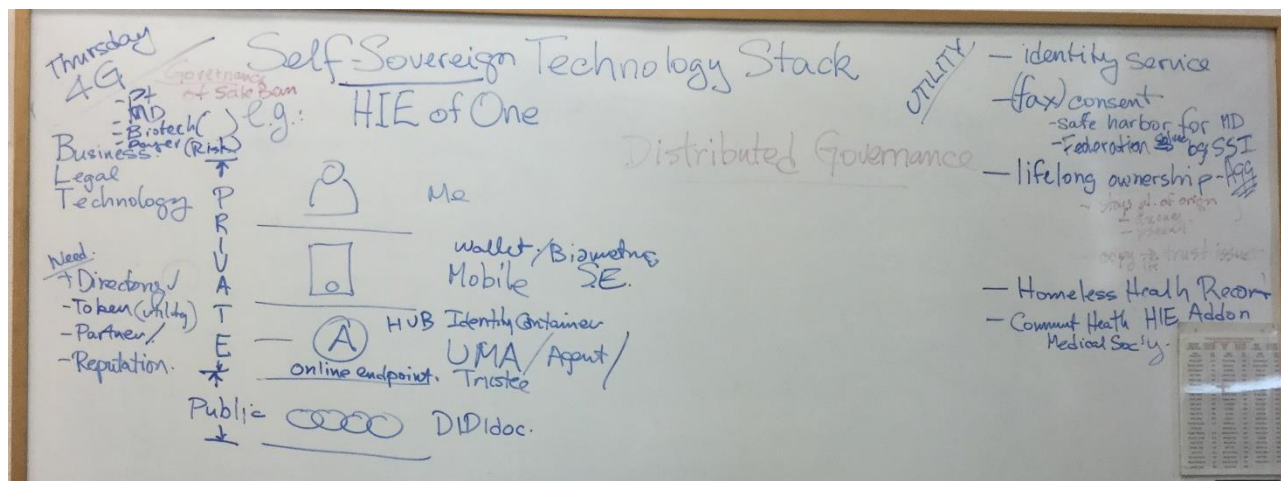 Thursday
4G
Governance
of Safe Ban
- Pt
- MD
- Biotech( )
- Payer (Risk)
Business
Legal
Technology
Need:
+ Directory ✓
- Token (utility)
- Partner /
- Reputation.
Self-Sovereign Technology Stack
e.g.: HIE of One
PRIVATE
Me
Wallet / Biometric
Mobile SE.
A
HUB Identity Container
UMA / Agent /
online endpoint. Trustee
Public
DID doc.
Distributed Governance
UTILITY
- identity service
- (fax) consent
- safe harbor for MD
- Federation by SSI
- lifelong ownership - Agg
- stays at origin
trust issue
- Homeless Health Record
- Commun't Heath HIE Addon
Medical Soc'y.